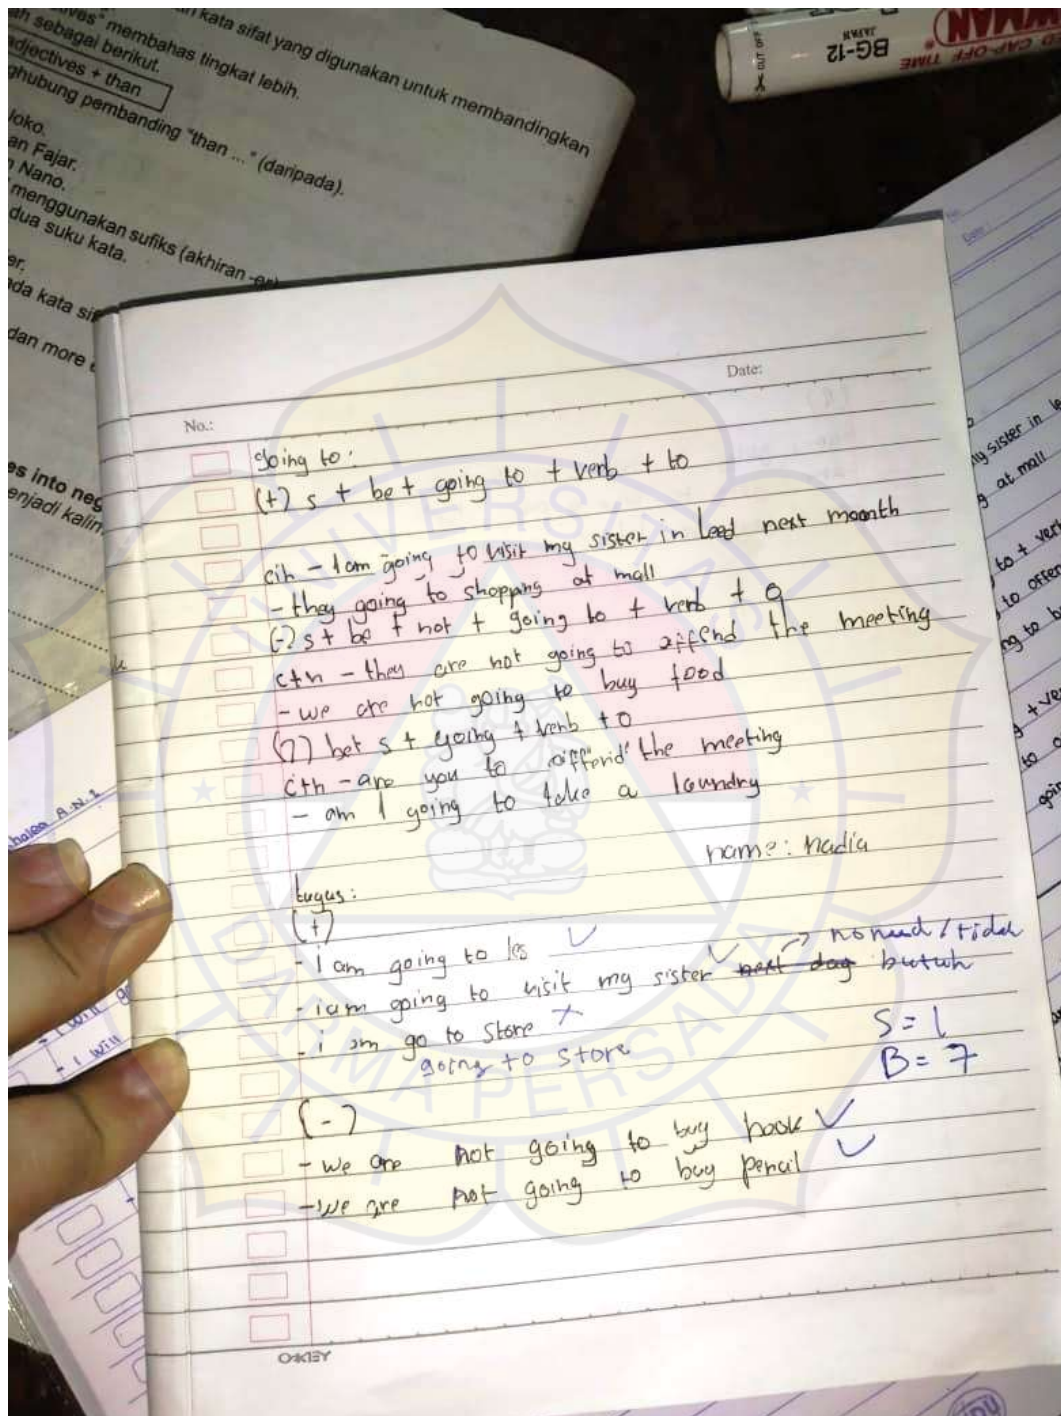 kata sifat yang digunakan untuk membandingkan
membahas tingkat lebih.
sebagai berikut.
adjectives + than
ghubung pembanding "than ..." (daripada).
loko.
an Fajar.
Nano.
menggunakan sufiks (akhiran -er)
dua suku kata.
er,
da kata sif
dan more
es into neg
enjadi kalin
CUT OFF
JAPAN
BG-12
KMAN
CAP-OFF TIME
No.:
Date:
going to:
(+) s + be + going to + verb + to
cth - I am going to visit my sister in leed next moonth
- they going to shopping at mall
(-) s + be + not + going to + verb + o
cth - they are not going to affend the meeting
- we are not going to buy food
(?) bet s + going + verb + o
cth - are you to affend the meeting
- am I going to take a laundry
name: nadia
tugas:
(+)
- i am going to les
- i am going to visit my sister next day
no need / tidak butuh
- i am go to store
going to store
S = 1
B = 7
(-)
- we are not going to buy book
- we are not going to buy pencil
OAKEY
A.N.S
I will
- I will
my sister in le
at mall
to + ver
to offen
ng to b
+ ve
to
goin